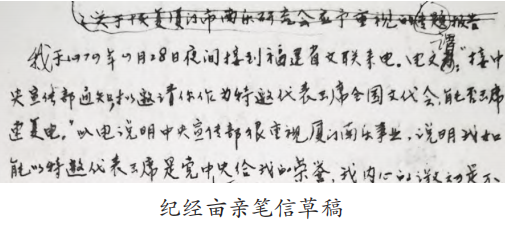 关于恢复厦门市南乐研究会应予重视的专题报告
我于1979年10月28日夜间接到福建省文联来电。电文谓:“接中
央宣传部通知拟邀请你作为特邀代表出席全国文代会,能否出席
速复电。”以电说明中央宣传部很重视厦门南乐事业,说明我如
能以特邀代表出席是党中央给我的荣誉,我内心的激动是不
纪经亩亲笔信草稿